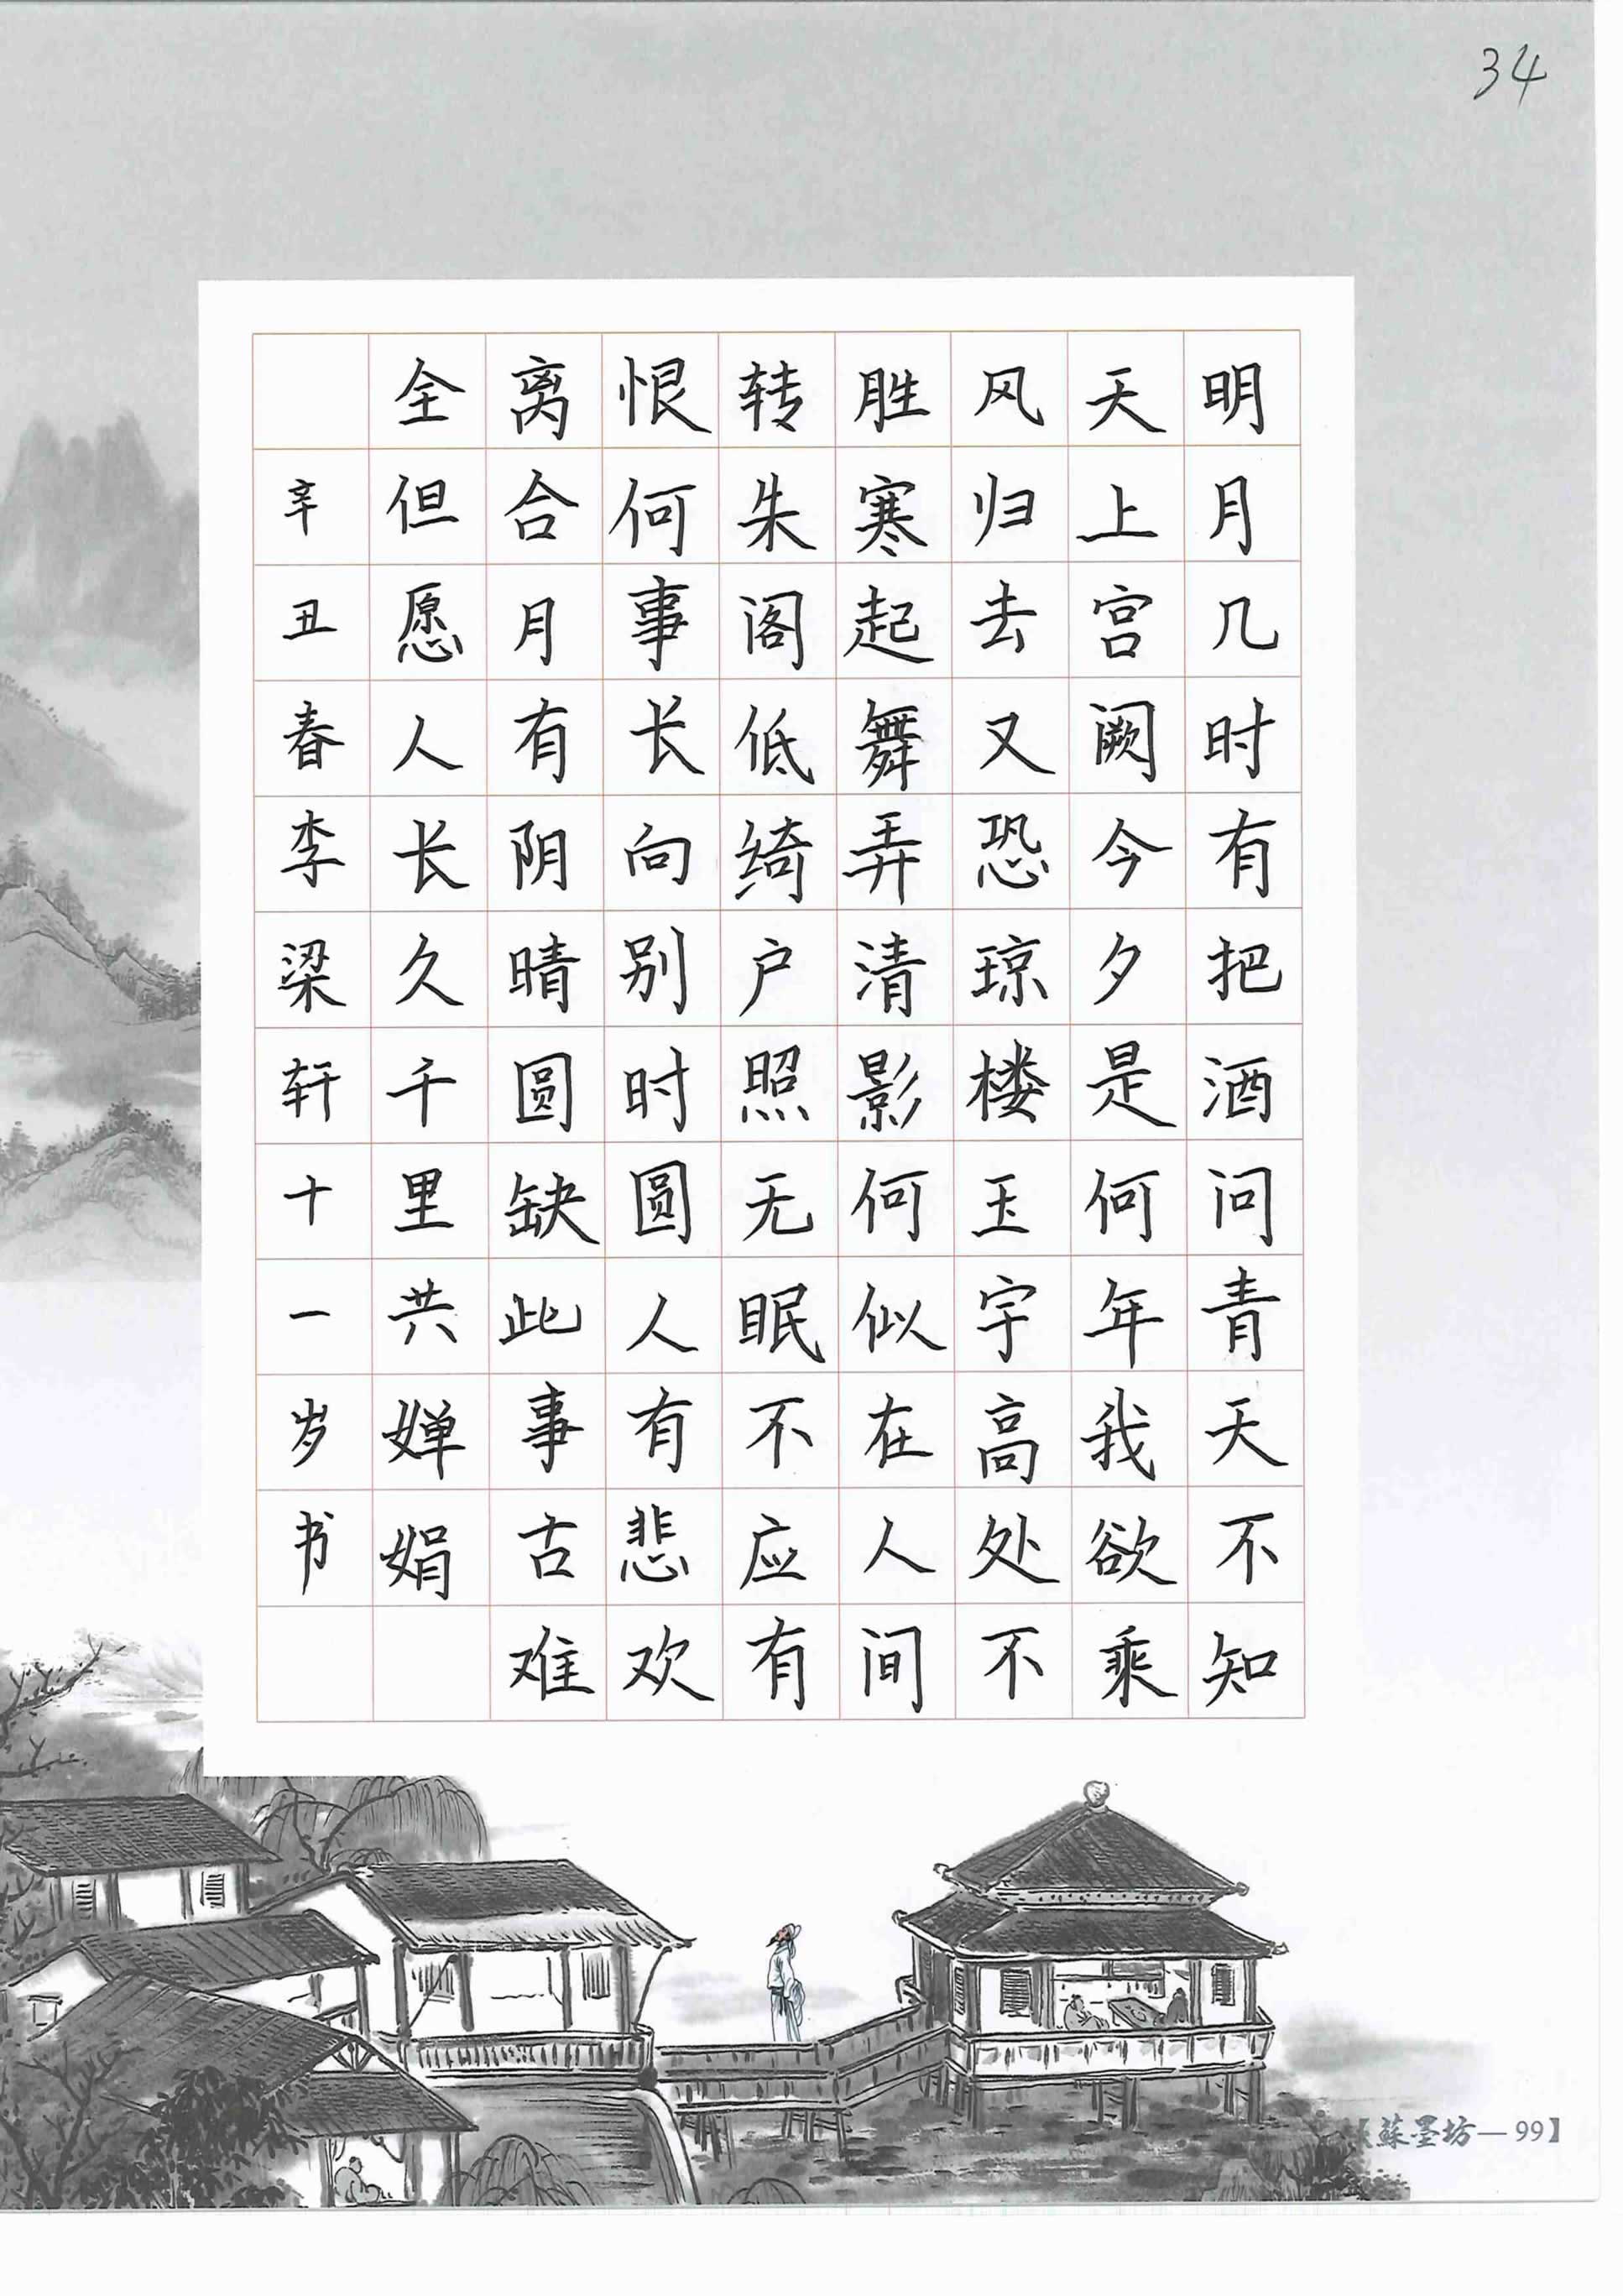 34
明月几时有把酒问青天不知
天上宫阙今夕是何年我欲乘
风归去又恐琼楼玉宇高处不
胜寒起舞弄清影何似在人间
转朱阁低绮户照无眠不应有
恨何事长向别时圆人有悲欢
离合月有阴晴圆缺此事古难
全但愿人长久千里共婵娟
辛丑春李梁轩十一岁书
【蘇墨坊—99】